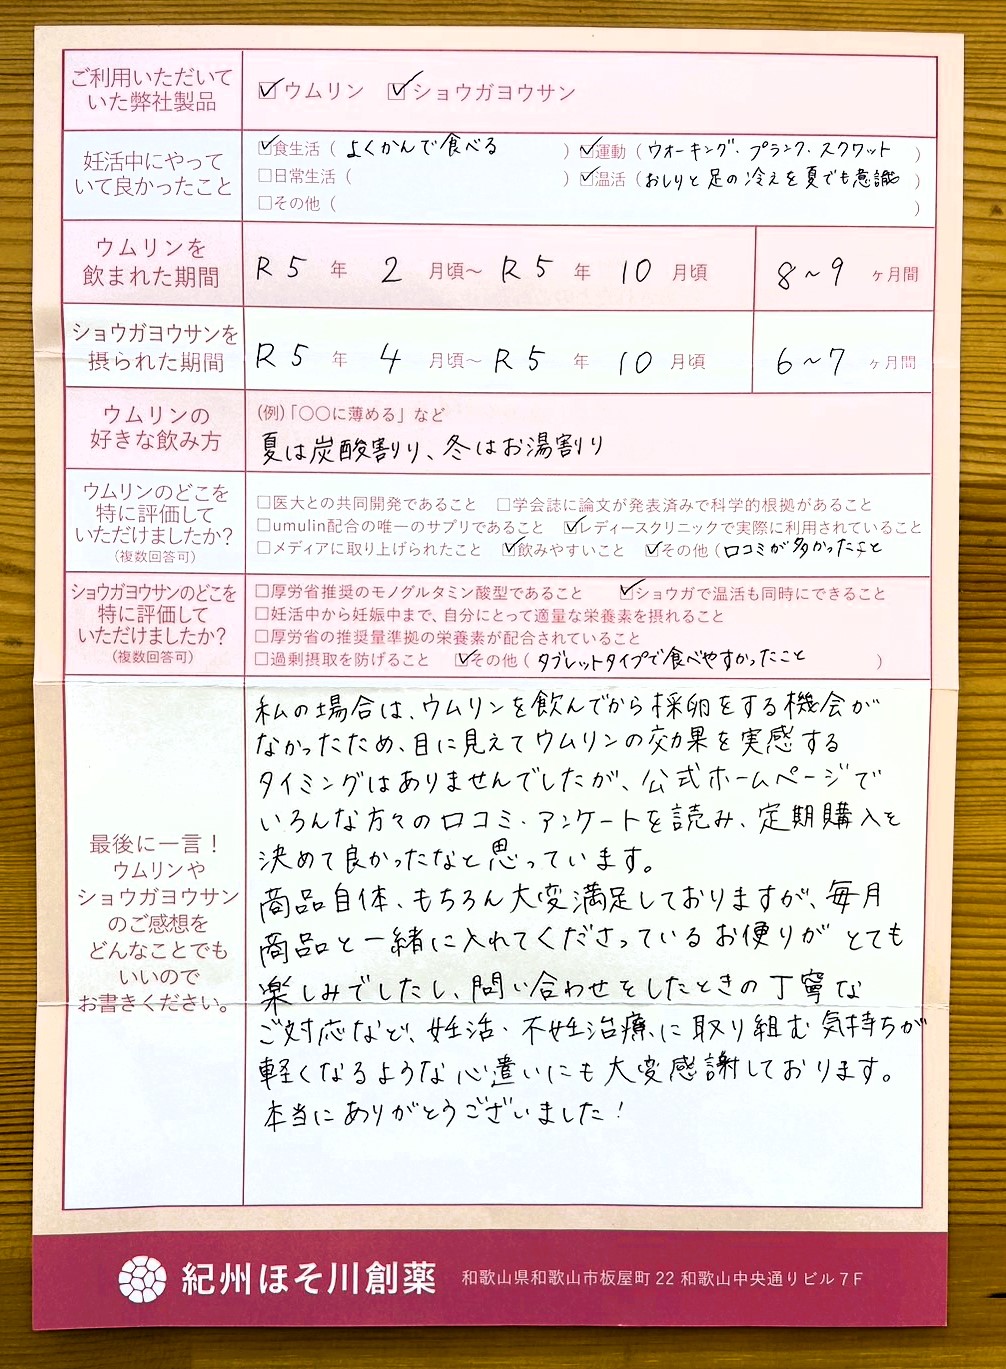 ご利用いただいて
いた弊社製品
☑ウムリン ☑ショウガヨウサン
妊活中にやって
いて良かったこと
☑食生活（よくかんで食べる） ☑運動（ウォーキング・プランク・スクワット）
□日常生活（ ） ☑温活（おしりと足の冷えを夏でも意識）
□その他（ ）
ウムリンを
飲まれた期間
R5年 2月頃〜R5年 10月頃 8〜9ヶ月間
ショウガヨウサンを
摂られた期間
R5年 4月頃〜R5年 10月頃 6〜7ヶ月間
ウムリンの
好きな飲み方
(例)「〇〇に薄める」など
夏は炭酸割り、冬はお湯割り
ウムリンのどこを
特に評価して
いただけましたか？
(複数回答可)
□医大との共同開発であること □学会誌に論文が発表済みで科学的根拠があること
□umulin配合の唯一のサプリであること ☑レディースクリニックで実際に利用されていること
□メディアに取り上げられたこと ☑飲みやすいこと ☑その他（口コミが多かったこと
ショウガヨウサンのどこを
特に評価して
いただけましたか？
(複数回答可)
□厚労省推奨のモノグルタミン酸型であること ☑ショウガで温活も同時にできること
□妊活中から妊娠中まで、自分にとって適量な栄養素を摂れること
□厚労省の推奨量準拠の栄養素が配合されていること
□過剰摂取を防げること ☑その他（タブレットタイプで食べやすかったこと）
最後に一言！
ウムリンや
ショウガヨウサン
のご感想を
どんなことでも
いいので
お書きください。
私の場合は、ウムリンを飲んでから採卵をする機会が
なかったため、目に見えてウムリンの効果を実感する
タイミングはありませんでしたが、公式ホームページで
いろんな方々の口コミ・アンケートを読み、定期購入を
決めて良かったなと思っています。
商品自体、もちろん大変満足しておりますが、毎月
商品と一緒に入れてくださっているお便りがとても
楽しみでしたし、問い合わせをしたときの丁寧な
ご対応など、妊活・不妊治療に取り組む気持ちが
軽くなるような心遣いにも大変感謝しております。
本当にありがとうございました！
紀州ほそ川創薬 和歌山県和歌山市板屋町22 和歌山中央通りビル7F